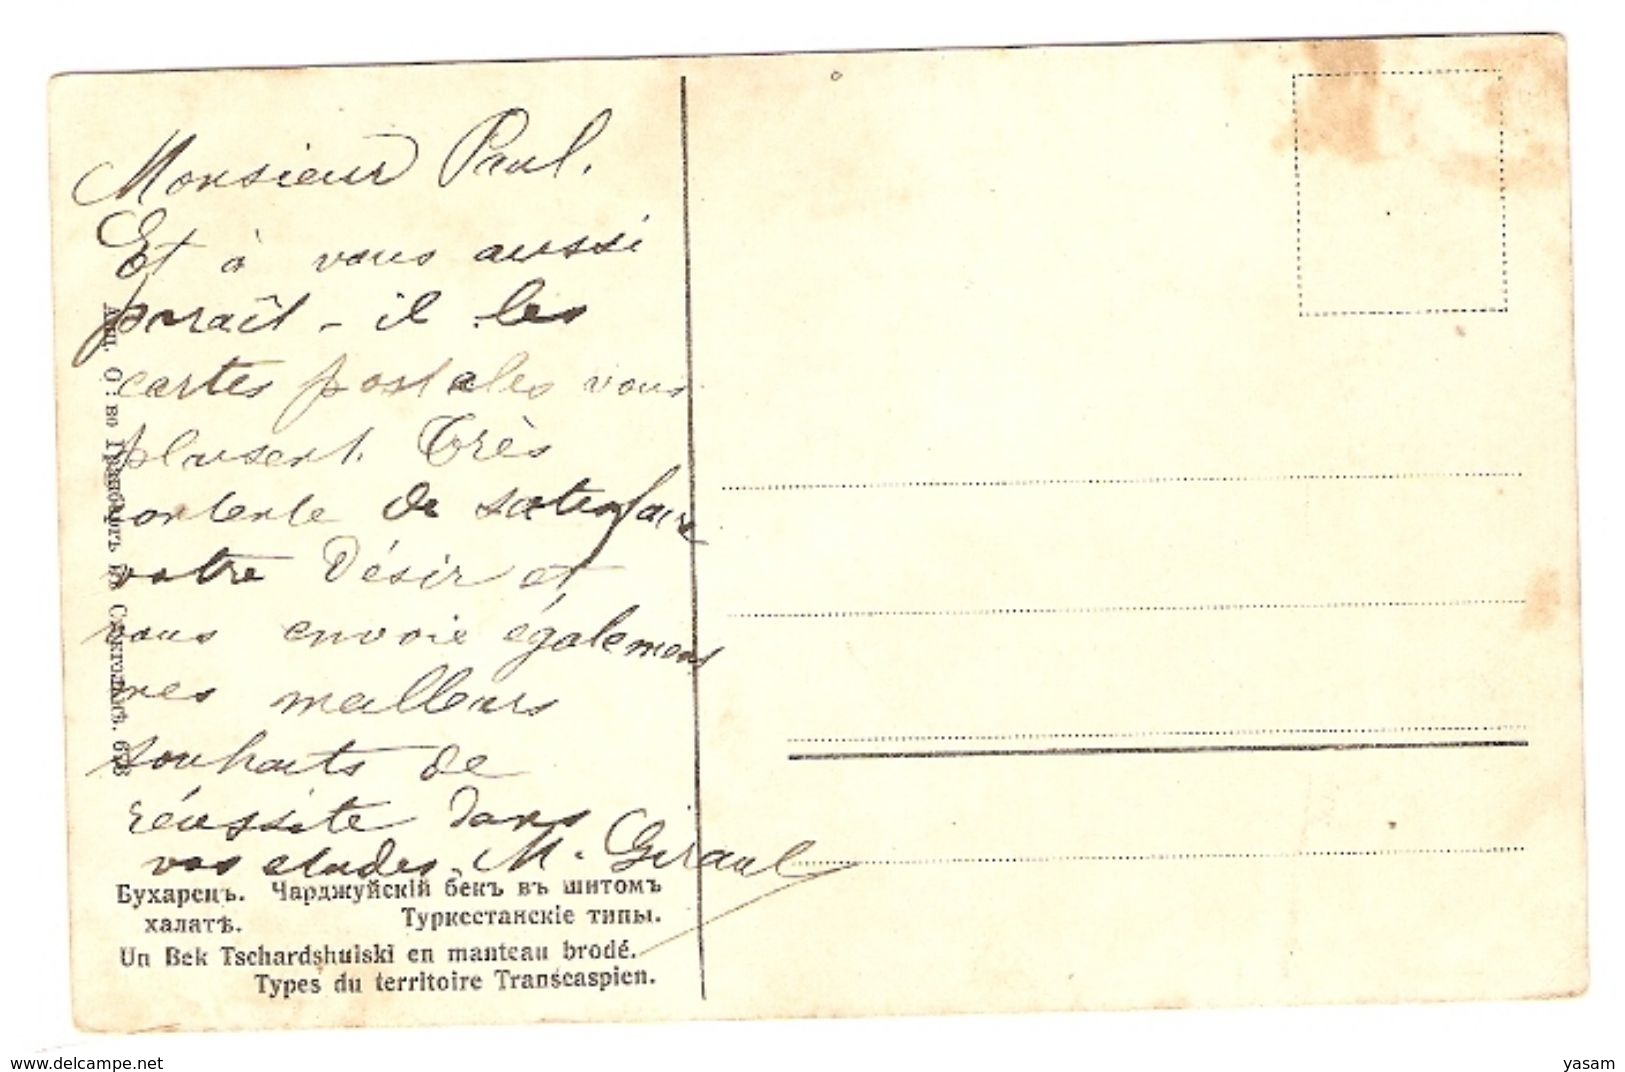 Monsieur Paul.
Et à vous aussi
paraît-il les
cartes postales vous
plaisent. Très
contente de satisfaire
votre désir et
vous envoie également
mes meilleurs
souhaits de
réussite dans
vos etudes. M. Giraul
Акц. О-во Гранбергъ въ Стокгольмѣ. 6
Бухарецъ. Чарджуйскій бекъ въ шитомъ
халатѣ. Туркестанскіе типы.
Un Bek Tschardshuiski en manteau brodé.
Types du territoire Transcaspien.
www.delcampe.net
yasam